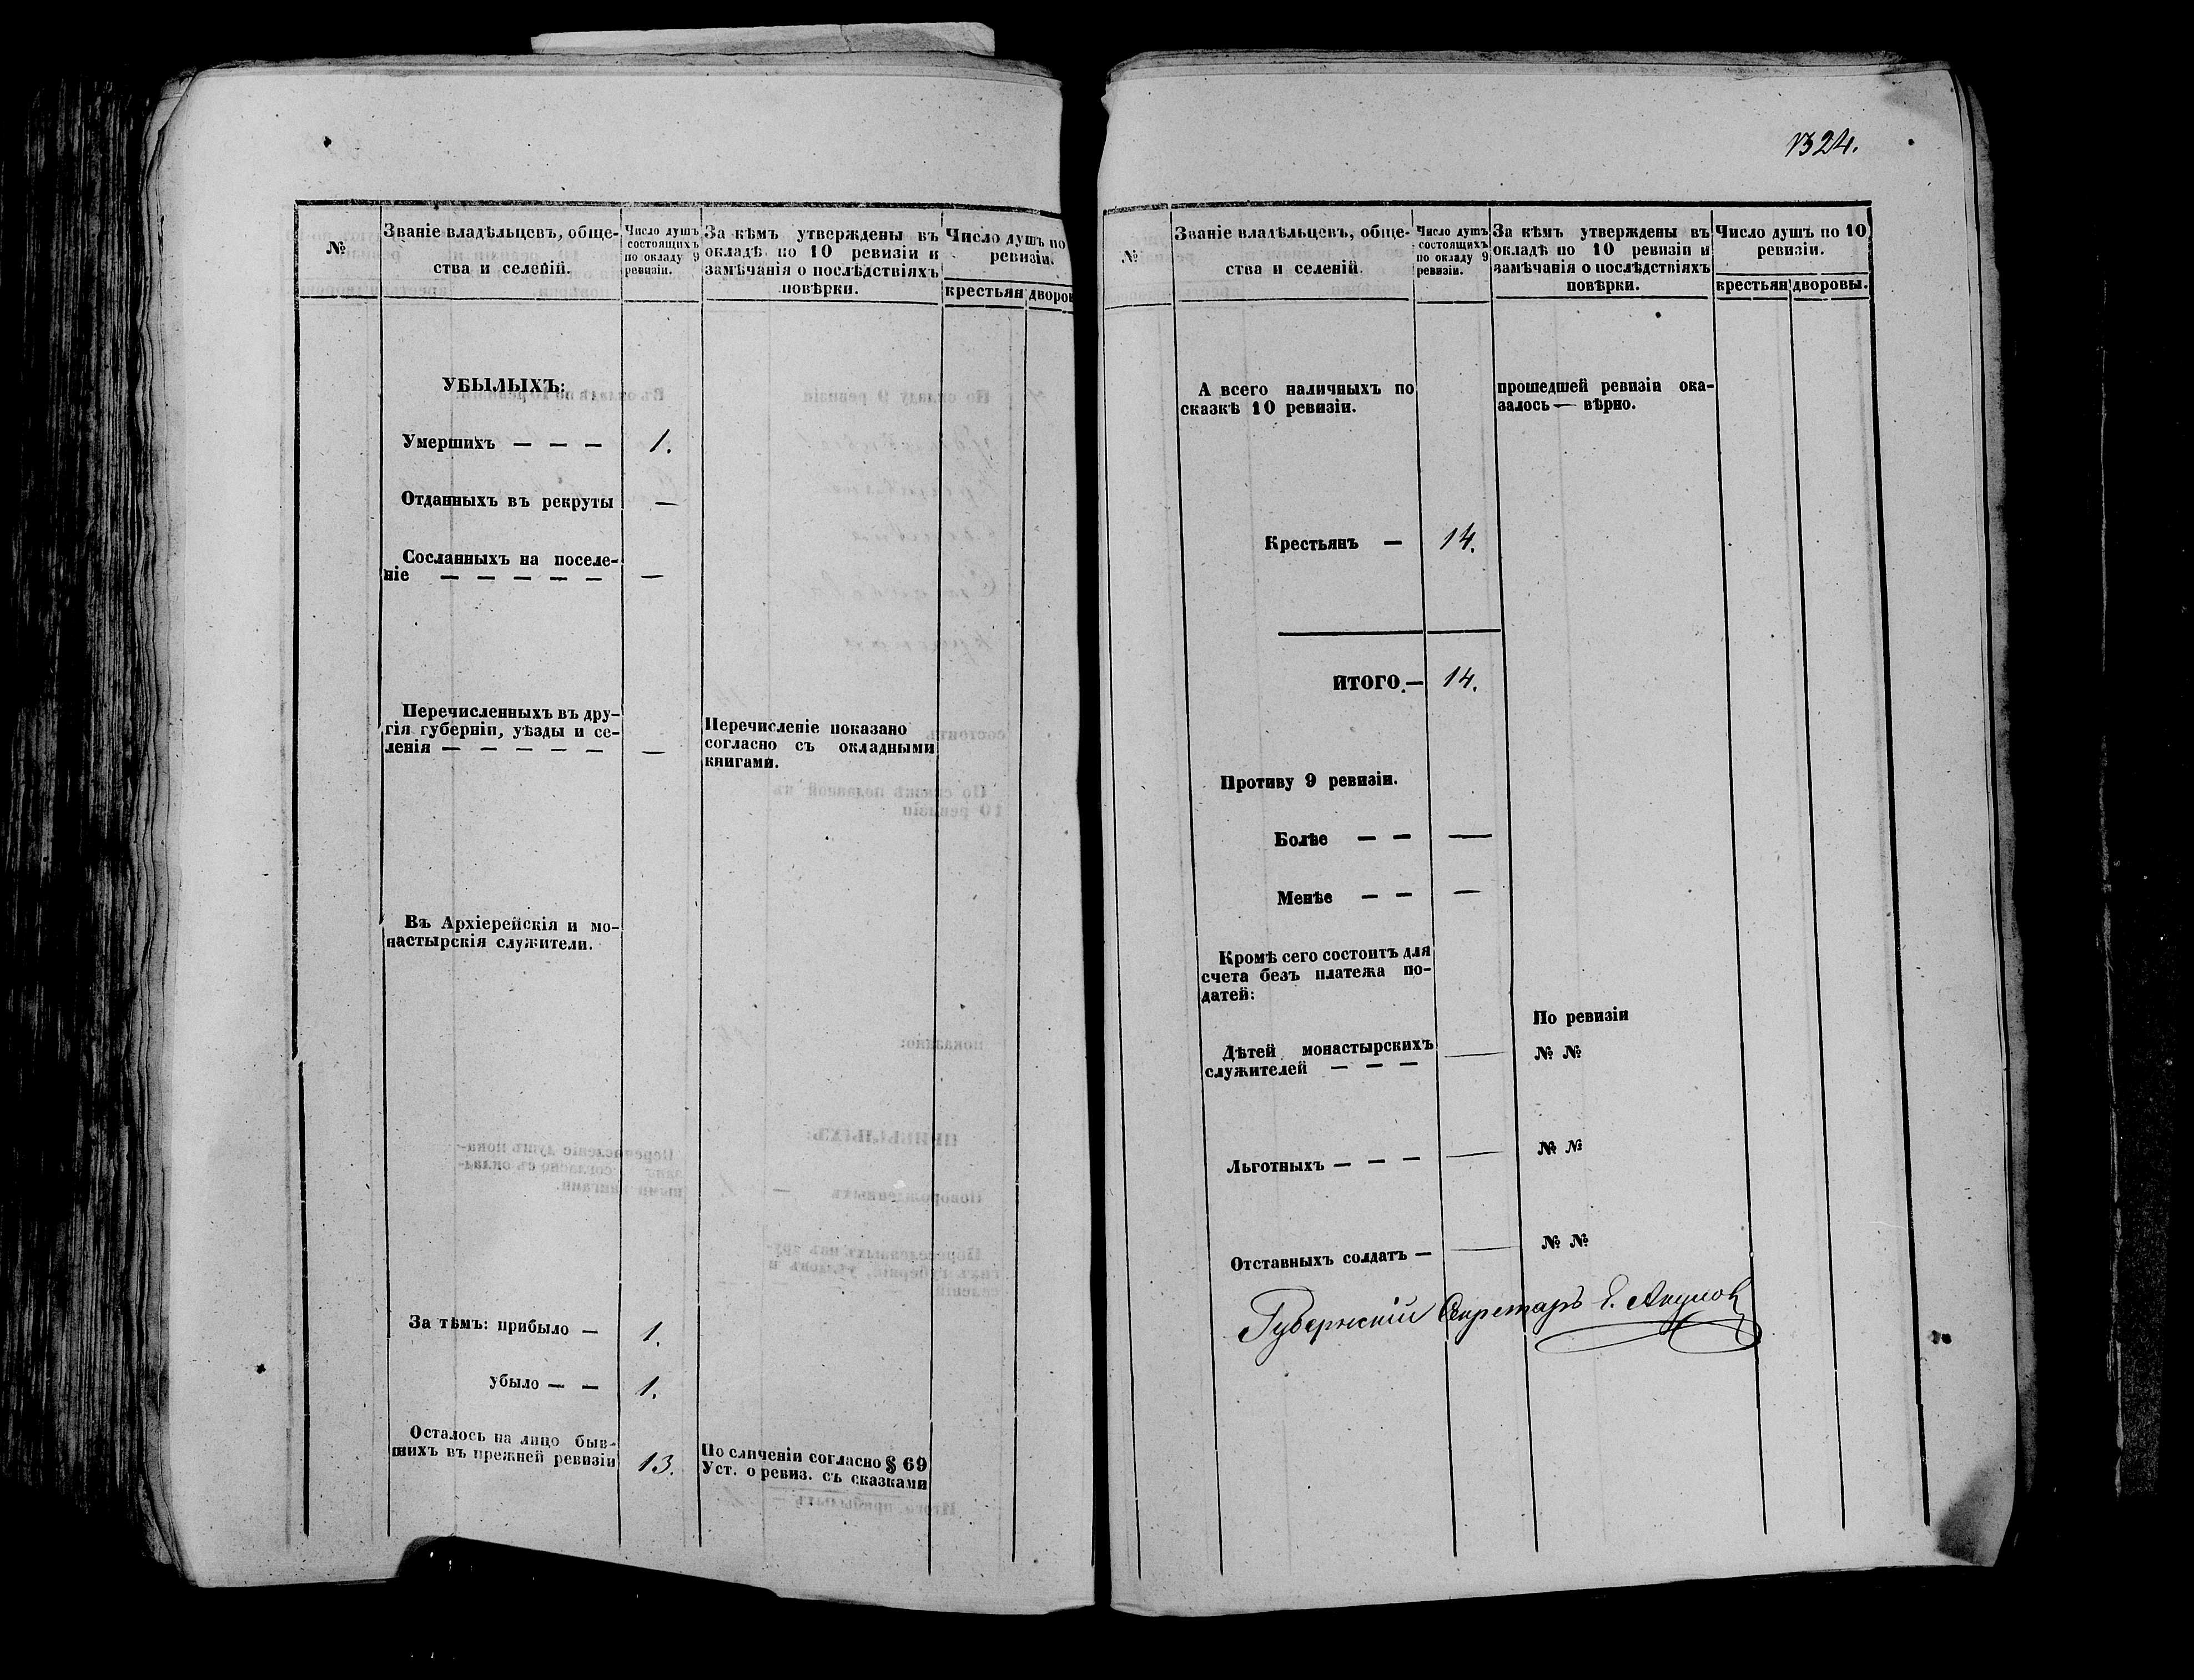 №
Званіе владѣльцевъ, обще-
ства и селеній.
Число душъ
состоящихъ
по окладу 9
ревизіи.
За кѣмъ утверждены въ
окладѣ по 10 ревизіи и
замѣчанія о послѣдствіяхъ
повѣрки.
Число душъ по
ревизіи.
крестьян
дворов
УБЫЛЫХЪ:
Умершихъ — — — 1.
Отданныхъ въ рекруты —
Сосланныхъ на поселе-
ніе — — — — — —
Перечисленныхъ въ дру-
гія губерніи, уѣзды и се-
ленія — — — — — —
Перечисленіе показано
согласно съ окладными
книгами.
Въ Архіерейскія и мо-
настырскія служители.
За тѣмъ: прибыло — 1.
убыло — — 1.
Осталось на лицо быв-
шихъ въ прежней ревизіи 13.
По сличеніи согласно § 69
Уст. о ревиз. съ сказками
1324.
№
Званіе владѣльцевъ, обще-
ства и селеній.
Число душъ
состоящихъ
по окладу 9
ревизіи.
За кѣмъ утверждены въ
окладѣ по 10 ревизіи и
замѣчанія о послѣдствіяхъ
повѣрки.
Число душъ по 10
ревизіи.
крестьян
дворовы.
А всего наличныхъ по
сказкѣ 10 ревизіи.
прошедшей ревизіи ока-
залось — вѣрно.
Крестьянъ — 14.
ИТОГО.— 14.
Противу 9 ревизіи.
Болѣе — — —
Менѣе — — —
Кромѣ сего состоитъ для
счета безъ платежа по-
датей:
По ревизіи
Дѣтей монастырскихъ
служителей — — — — № №
Льготныхъ — — — — № №
Отставныхъ солдатъ — — № №
Губернскій Секретарь Е. Акулов